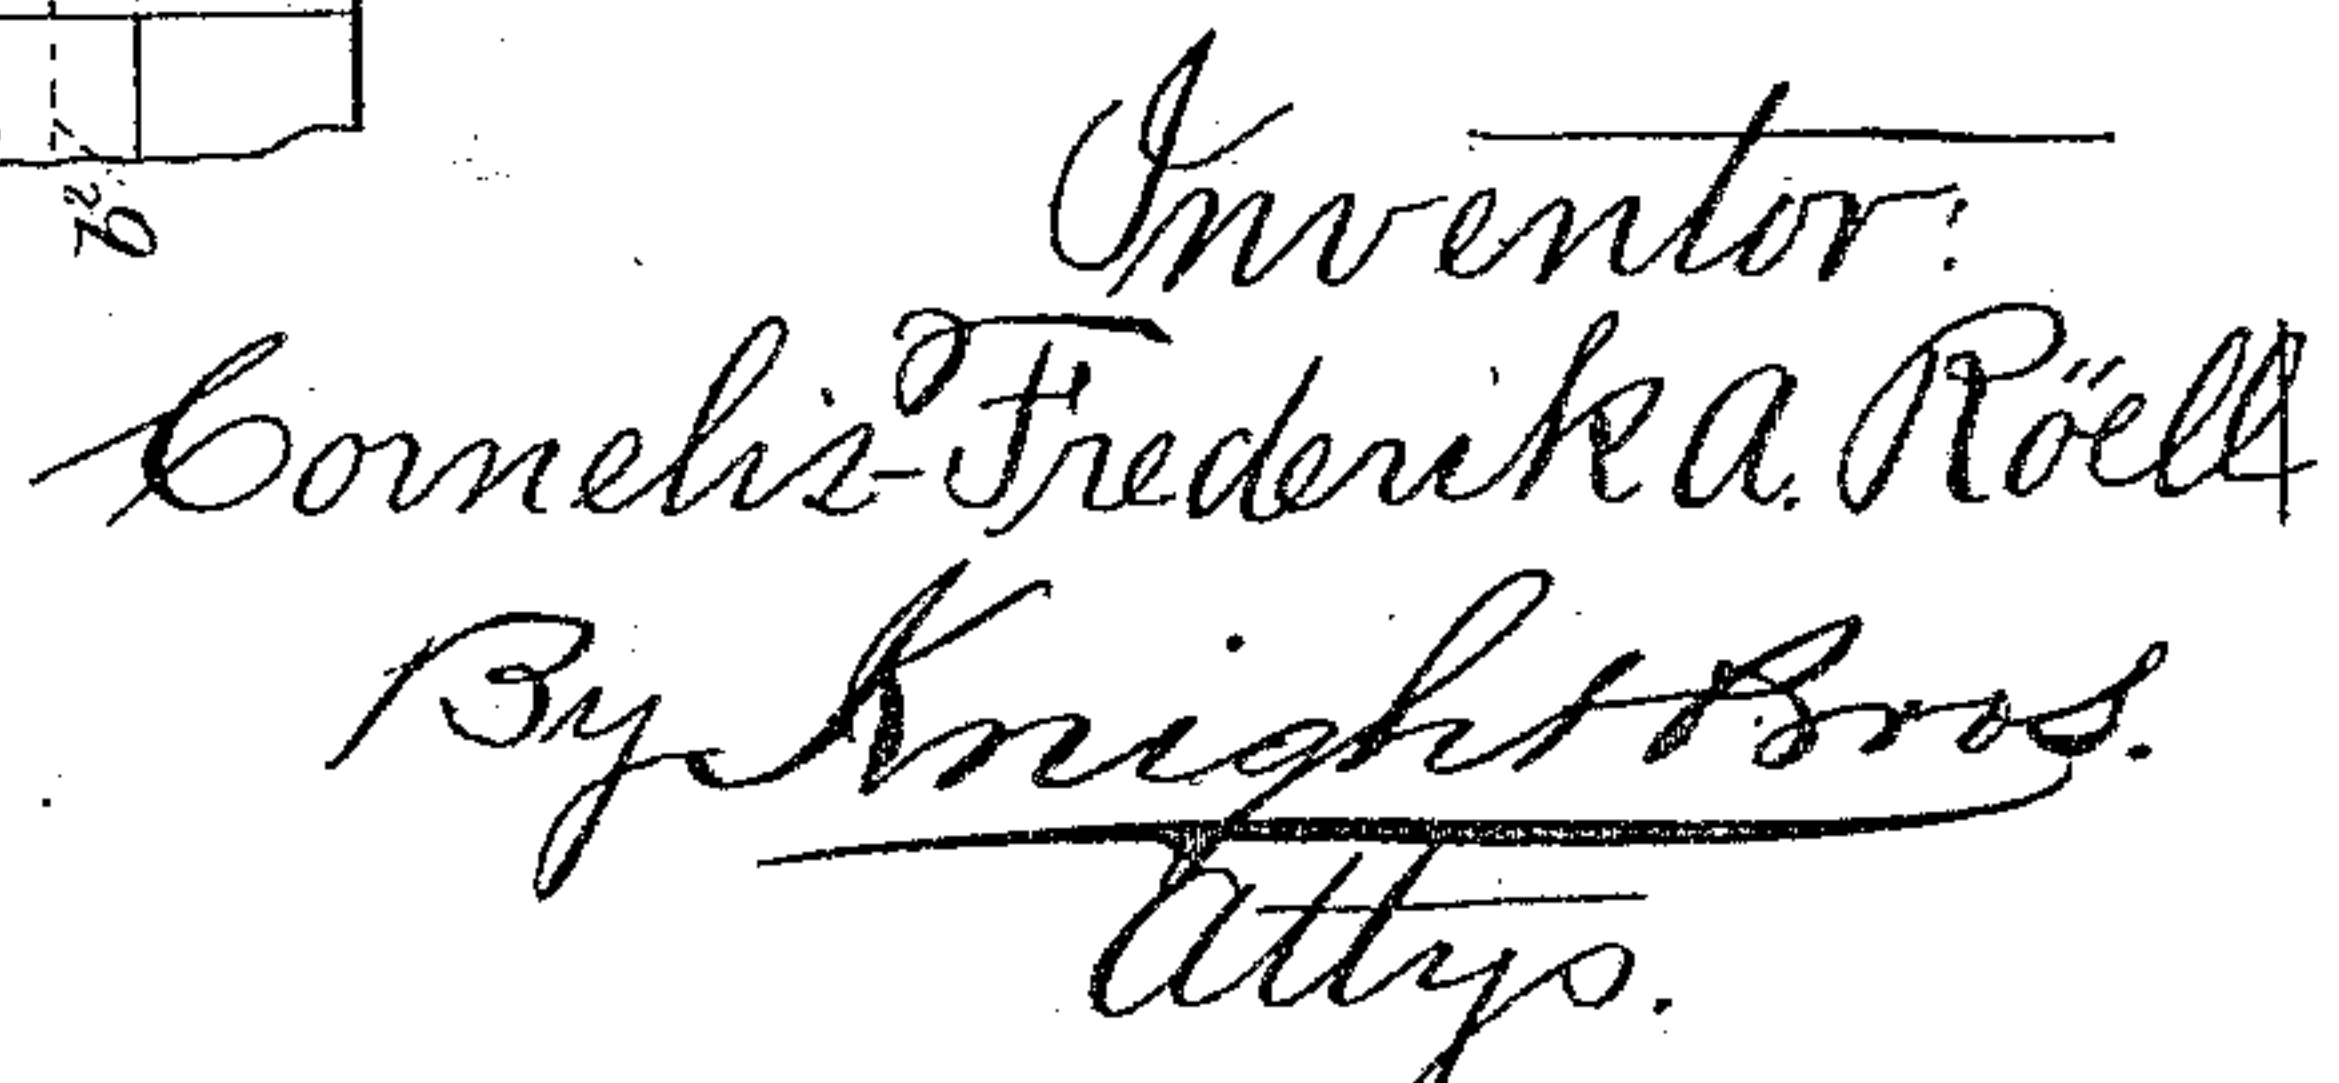 Inventor:
Cornelis Frederik A. Röell
By Knight Bros.
Attys.
6²